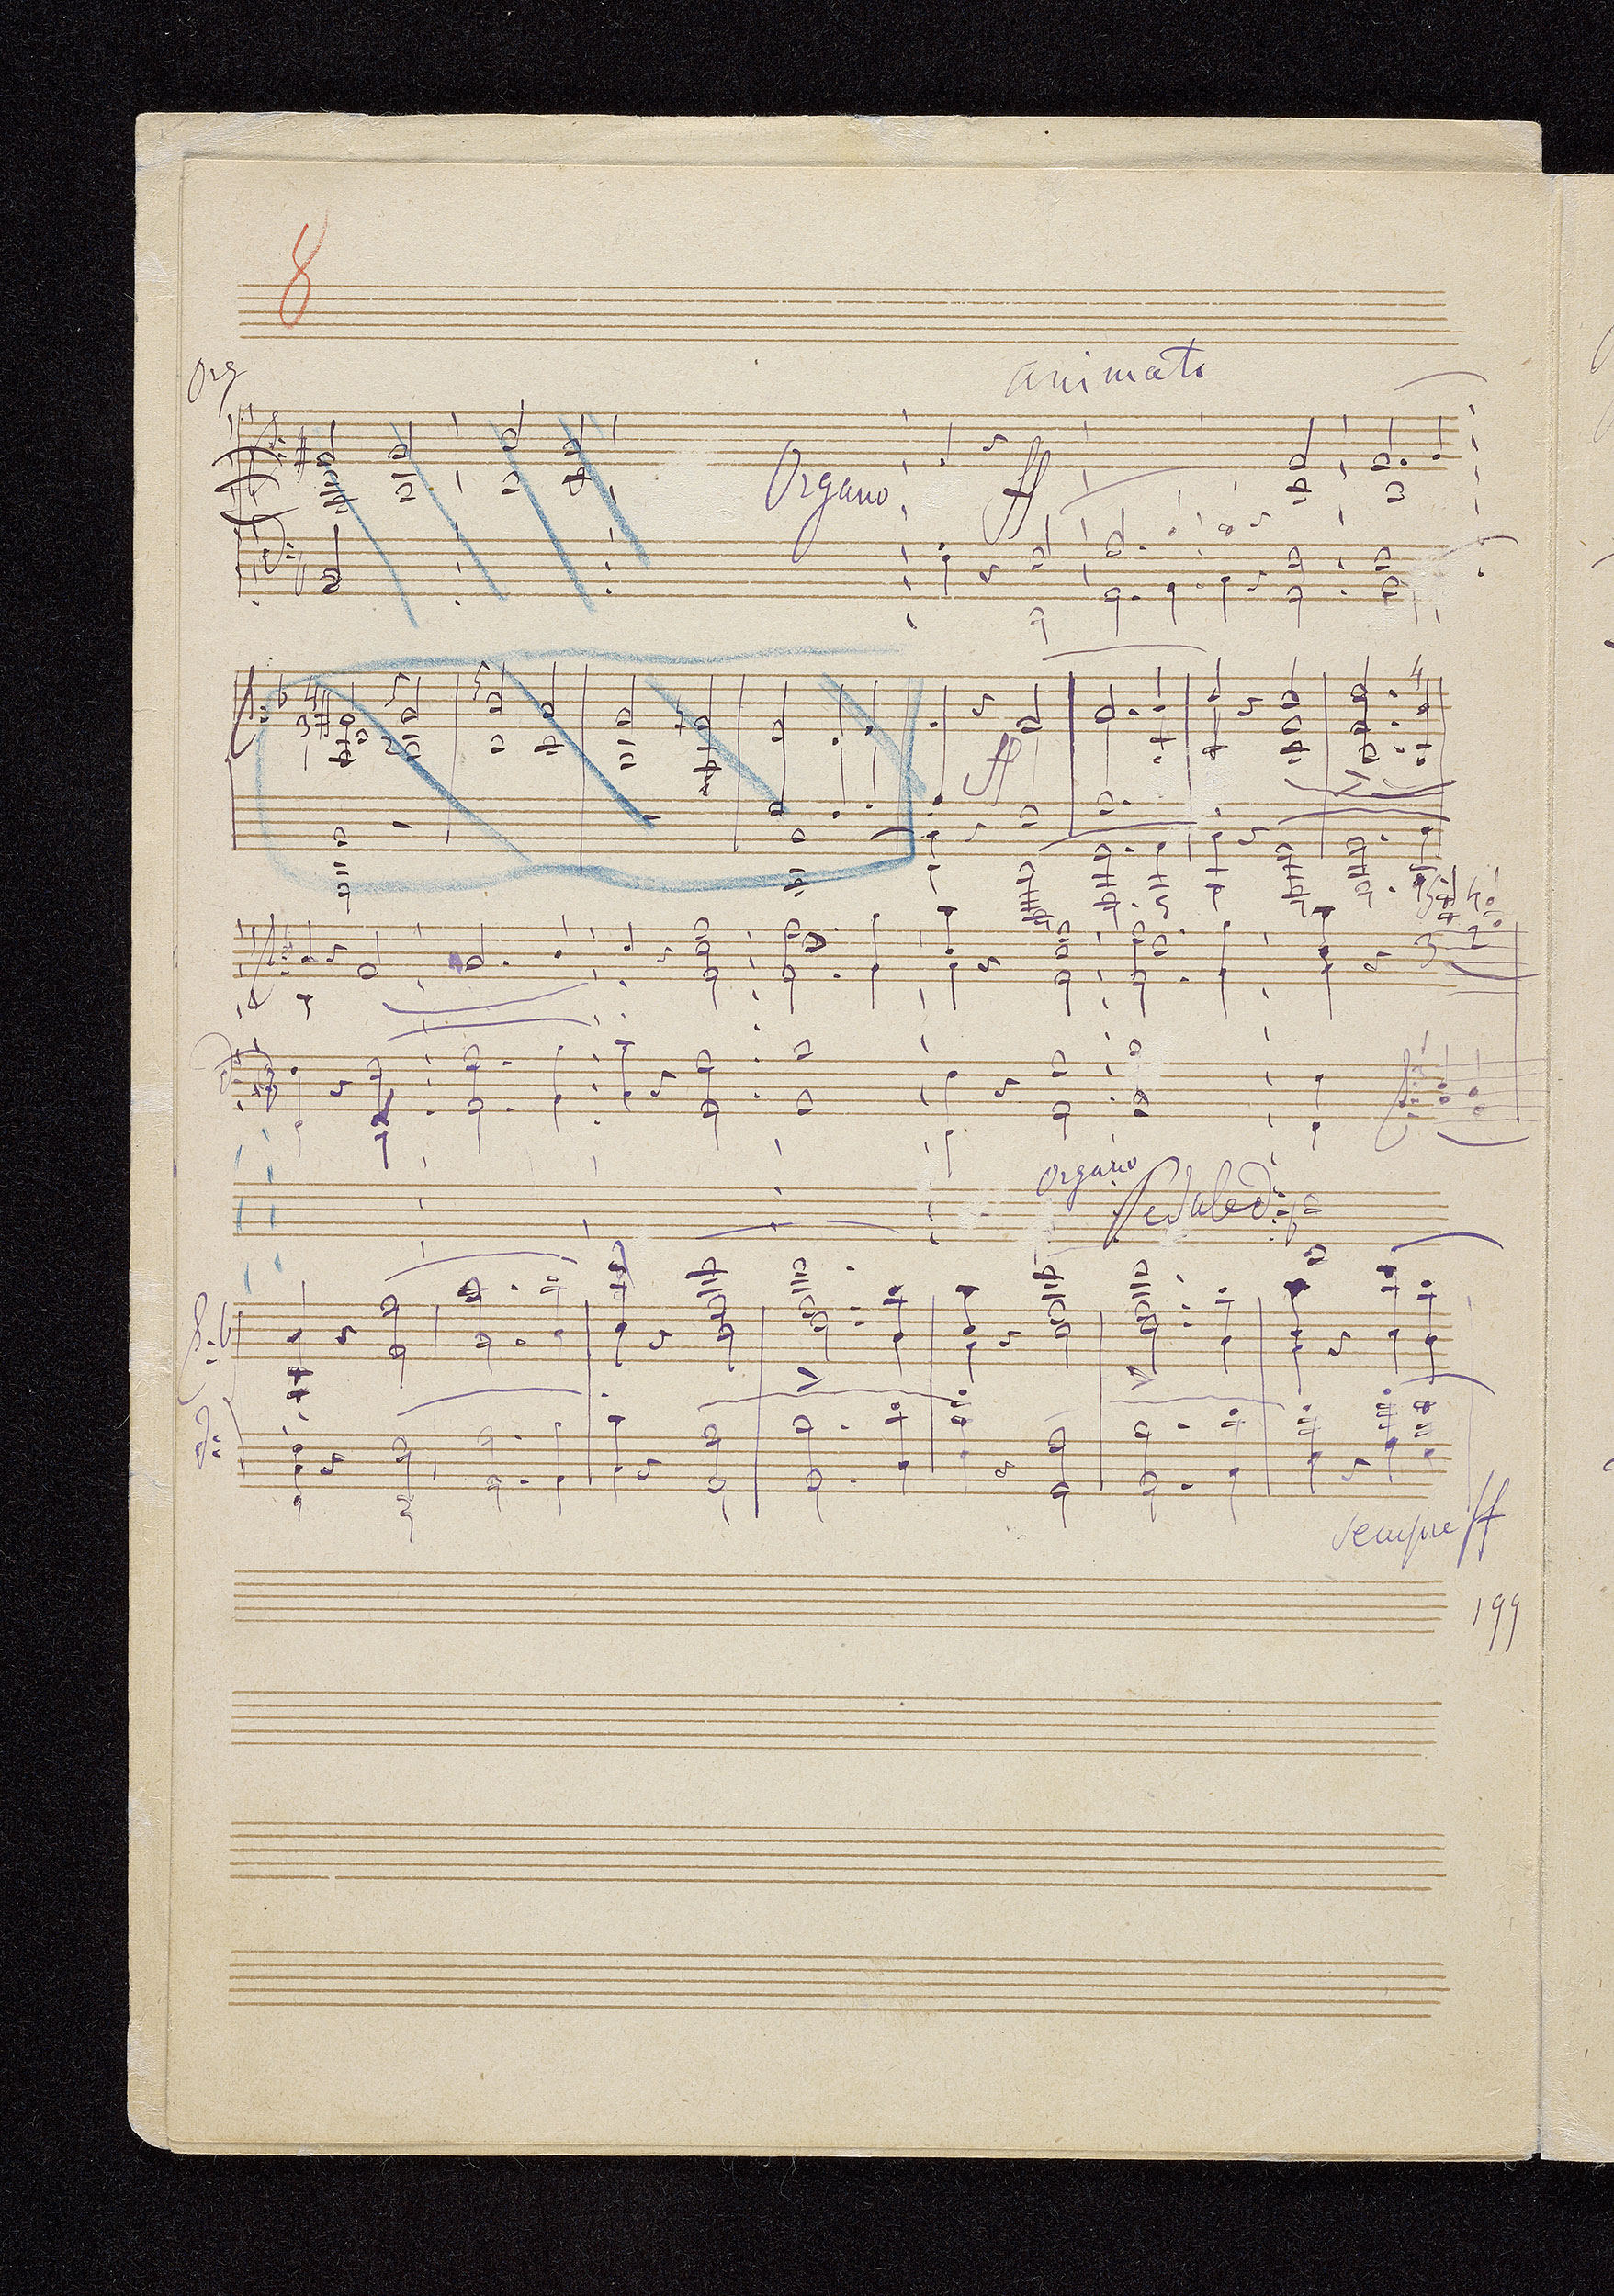 8
Org
animato
Organo
ff
ff
organo
Pedale
sempre ff
199